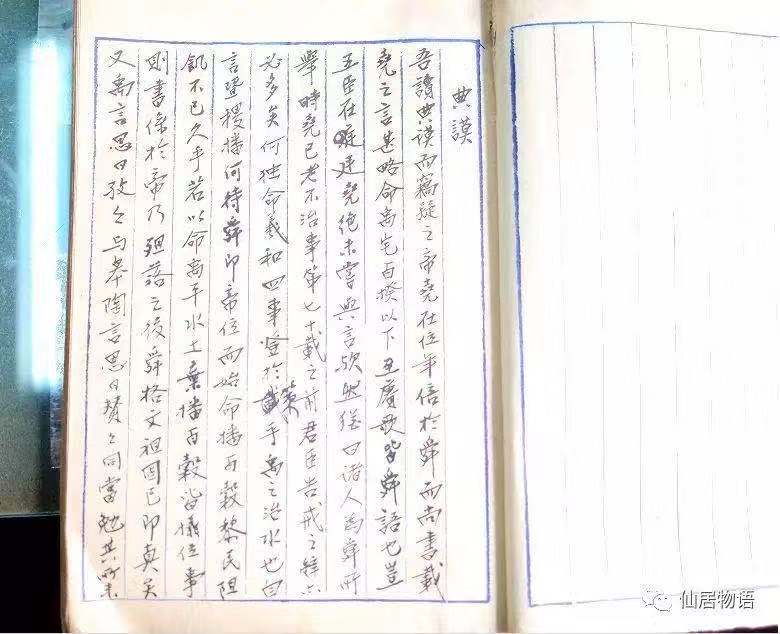 典謨
吾讀典謨而竊疑之帝堯在位年倍於舜而尚書載
堯之言甚略命禹宅百揆以下至賡歌皆舜語也豈
五臣在唯廷堯絶未嘗與言歟縱曰諸人為舜所
舉時堯已老不治事第七十載之前君臣告戒之辭
必多矣何獨命羲和四事登於策乎禹之治水也曰
言暨稷播何待舜即帝位而始命播百穀黎民阻
飢不已久乎若以命禹平水土棄播百穀皆攝位事
則書係於帝乃殂落之後舜格文祖固已即真矣
又禹言思日孜々与皋陶言思日贊々同當勉其所未
仙居物语